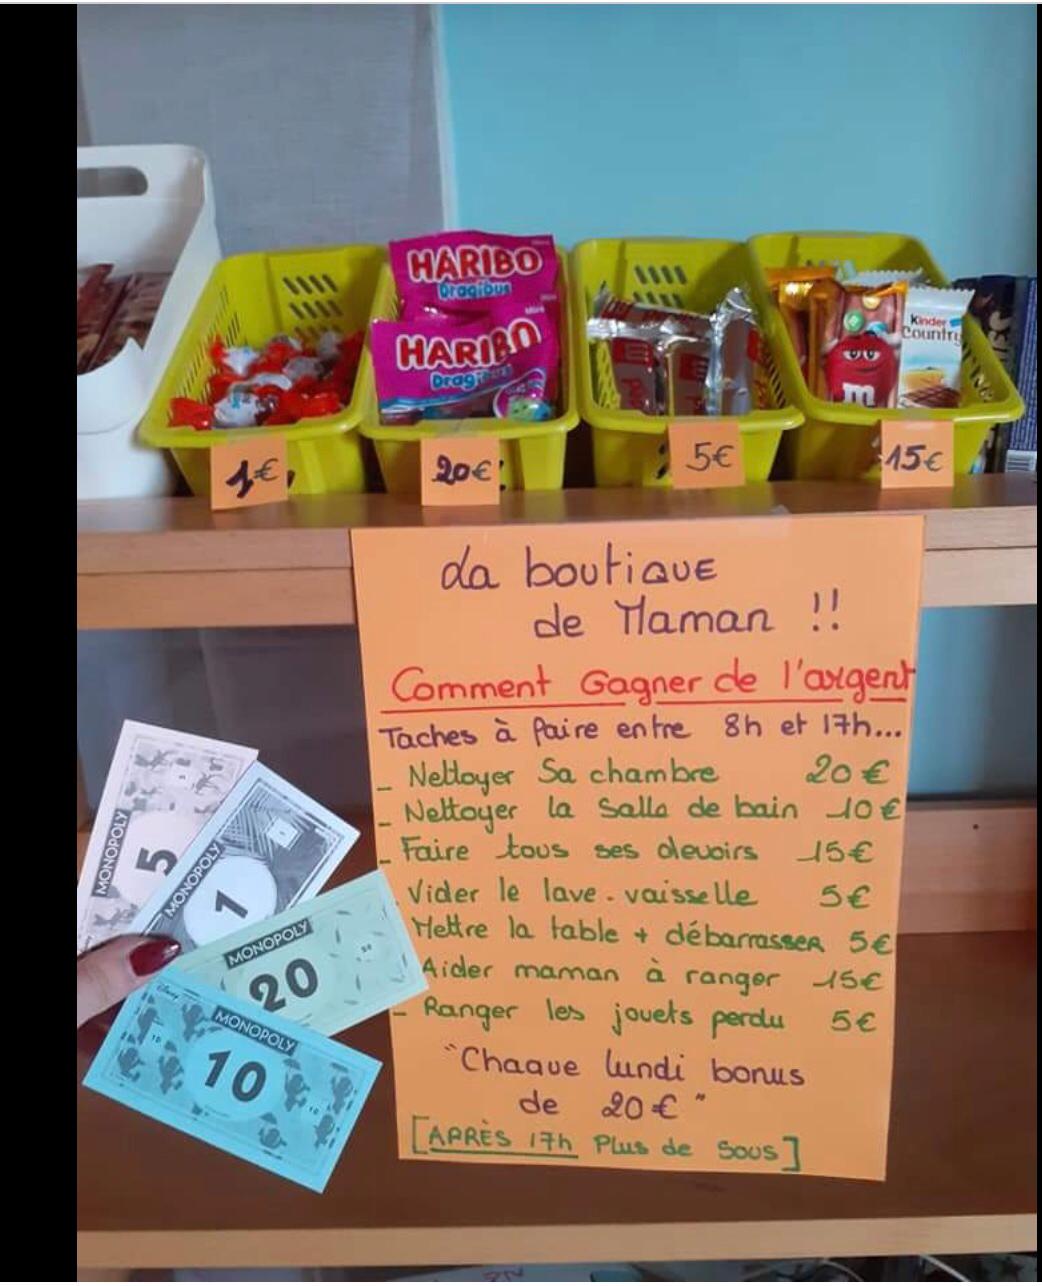 HARIBO
Dragibus
HARIBO
Dragibus
Kinder
Country
m
1€
20€
5€
15€
La boutique
de Maman !!
Comment Gagner de l'argent
Taches à faire entre 8h et 17h...
- Nettoyer Sa chambre 20 €
- Nettoyer la Salle de bain 10 €
- Faire tous ses devoirs 15€
Vider le lave-vaisselle 5€
Mettre la table + débarrasser 5€
Aider maman à ranger 15€
- Ranger les jouets perdu 5€
"Chaque lundi bonus
de 20 € "
[APRÈS 17h Plus de Sous]
MONOPOLY
5
MONOPOLY
1
MONOPOLY
20
Disney
MONOPOLY
10
10
10